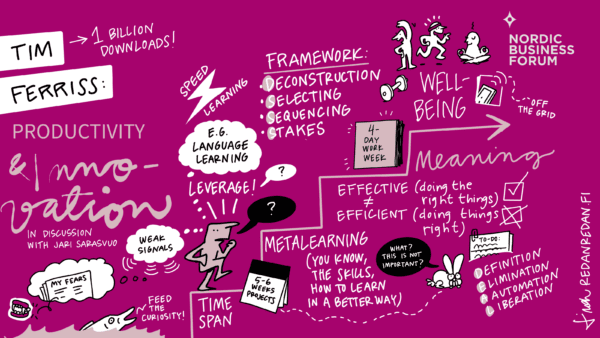 TIM
FERRISS:
→ 1 BILLION
DOWNLOADS!
PRODUCTIVITY
& Inno-
vation
IN DISCUSSION
WITH JARI SARASVUO
MY FEARS
FEED
THE
CURIOSITY!
WEAK
SIGNALS
SPEED
LEARNING
E.G.
LANGUAGE
LEARNING
LEVERAGE!
?
?
FRAMEWORK:
DECONSTRUCTION
SELECTING
SEQUENCING
STAKES
4-
DAY
WORK
WEEK
WELL-
BEING
NORDIC
BUSINESS
FORUM
OFF
THE GRID
Meaning
EFFECTIVE (doing the
right things)
≠
EFFICIENT (doing things
right)
METALEARNING
(YOU KNOW,
THE SKILLS,
HOW TO LEARN
IN A BETTER WAY)
TIME
SPAN
5-6
WEEKS
PROJECTS
WHAT?
THIS IS NOT
IMPORTANT?
TO-DO:
DEFINITION
ELIMINATION
AUTOMATION
LIBERATION
REDANREDAN.FI